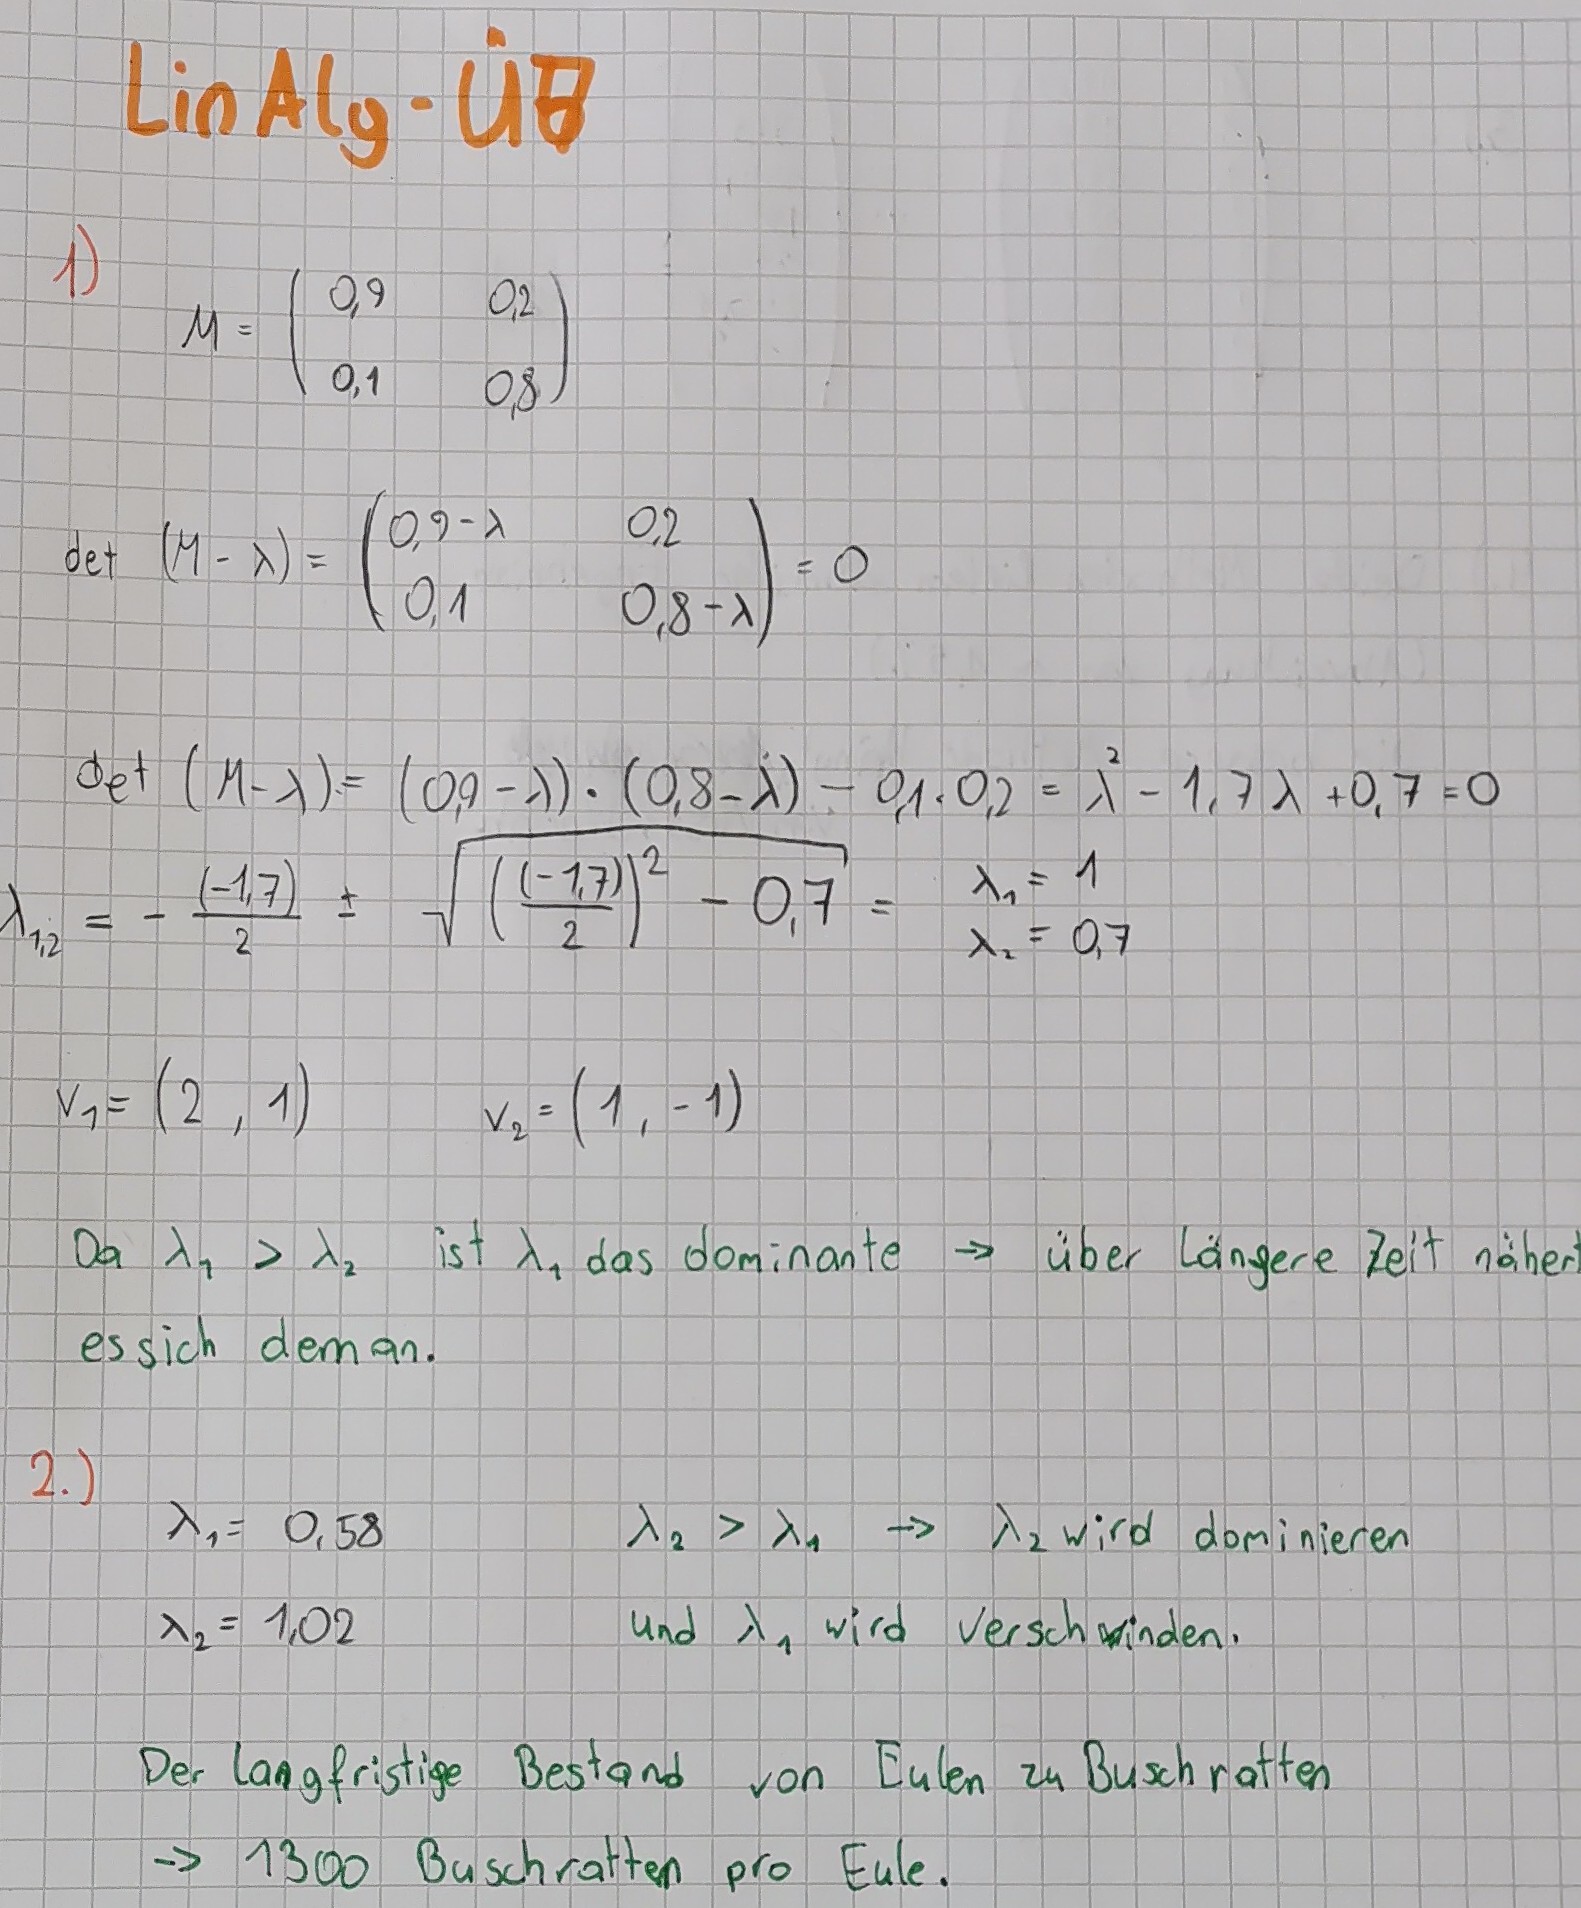 LinAlg-ÜB
1)
M = ( 0,9 0,2
0,1 0,8 )
det (M - λ) = ( 0,9-λ 0,2
0,1 0,8-λ ) = 0
det (M-λ) = (0,9-λ) · (0,8-λ) - 0,1·0,2 = λ² - 1,7λ + 0,7 = 0
λ₁,₂ = - (-1,7)/2 ± √(((-1,7)/2)² - 0,7) = λ₁ = 1
λ₂ = 0,7
v₁ = (2, 1) v₂ = (1, -1)
Da λ₁ > λ₂ ist λ₁ das dominante → über längere Zeit nähert
es sich dem an.
2.)
λ₁ = 0,58 λ₂ > λ₁ → λ₂ wird dominieren
λ₂ = 1,02 und λ₁ wird verschwinden.
Der langfristige Bestand von Eulen zu Buschratten
→ 1300 Buschratten pro Eule.